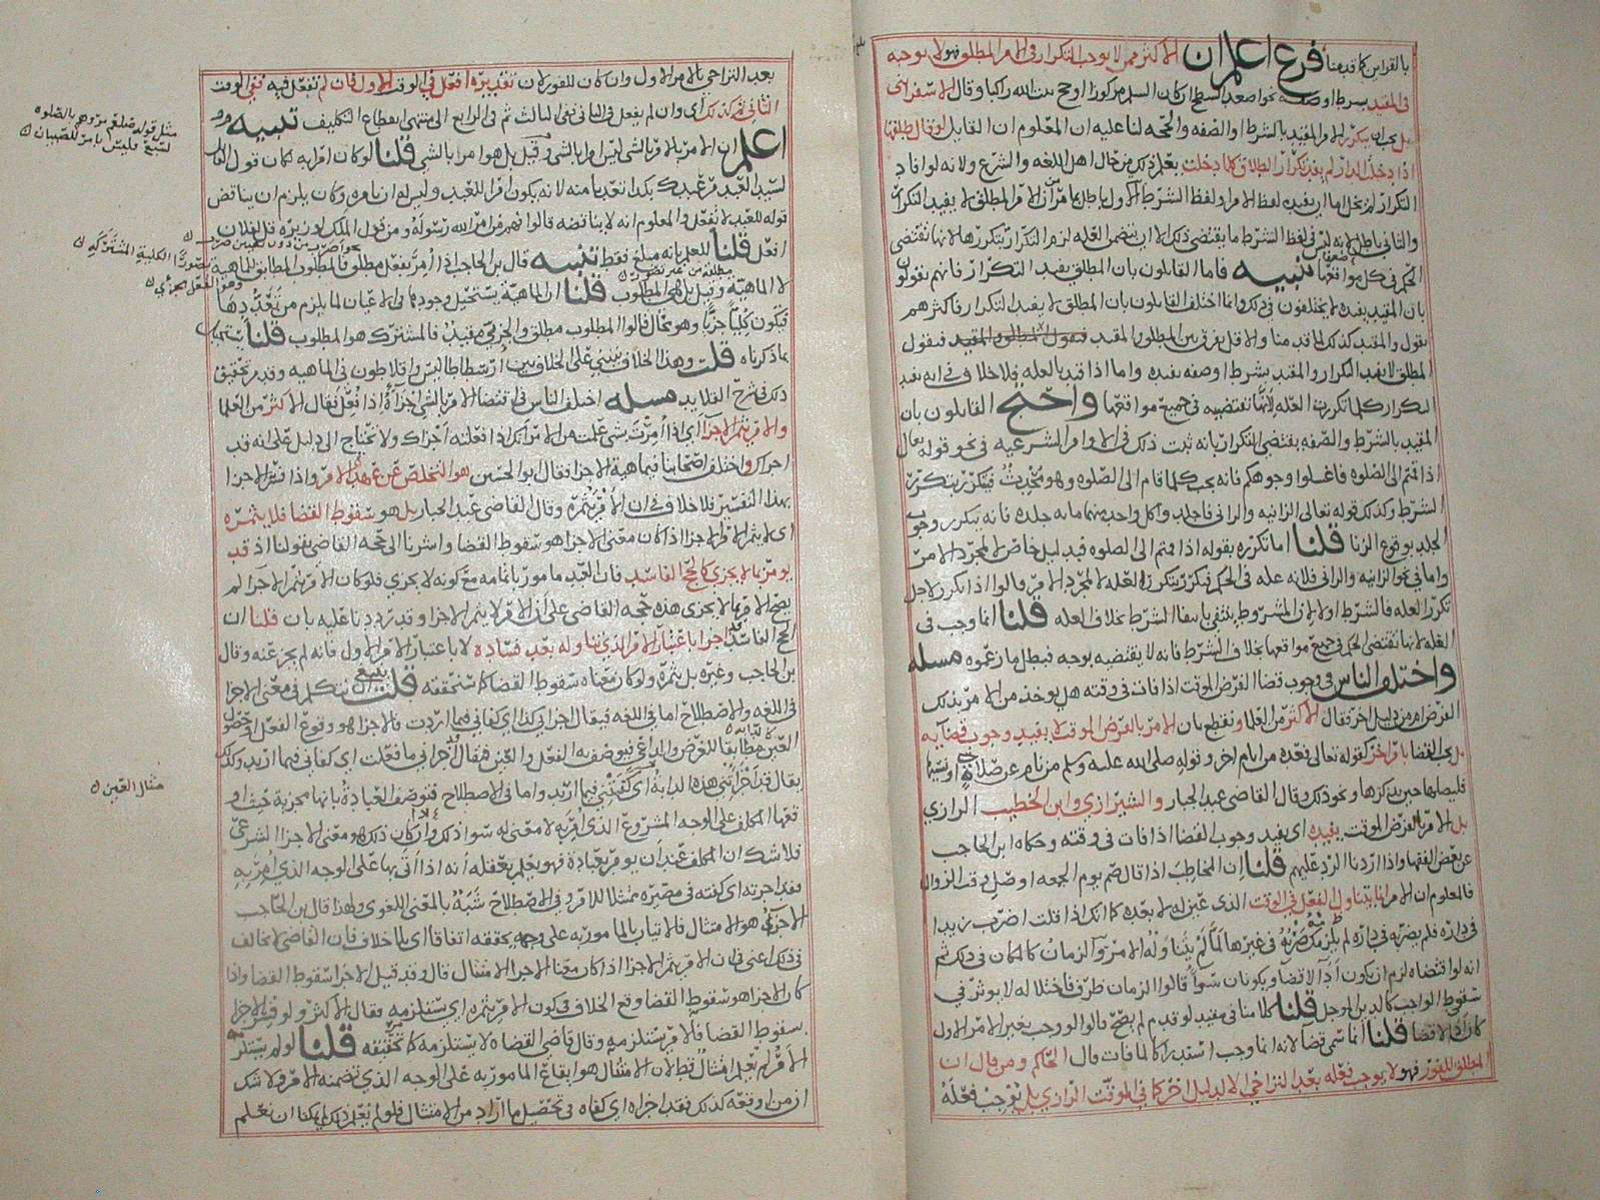 بالقراين كما قدمنا فرع اعلم ان الاكثر ممن لا يوجب التكرار في الامر المطلق فهو لا يوجبه
في المقيد بشرط او صفة نحو اصعد السطح ان كان السلم مركوزا او حج بيت الله راكبا وقال الاسفراني
بل يجب تكرر الامر المقيد بالشرط او الصفه والحجه لنا عليه ان المعلوم ان القايل لو قال طلقها
اذا دخلت الدار لم يفد تكرار الطلاق كلما دخلت يعلم ذلك من حال اهل اللغه والشرع ولانه لو افاد
التكرار لم يخل اما ان يفيده لفظ الامر او لفظ الشرط الاول باطل بما مر ان الامر المطلق لا يفيد التكرار
والثاني باطل لانه ليس في لفظ الشرط ما يقتضي ذلك الا ان يتضمن العله لزم التكرار بتكررها لانها تقتضي
الحكم في كل مواقعها تنبيه فاما القايلون بان المطلق يفيد التكرار فانهم يقولون
بان المقيد يفيده لا يختلفون في ذلك وانما اختلف القايلون بان المطلق لا يفيد التكرار فاكثرهم
يقول والمقيد كذلك لما قدمنا والاقل يفرق بين المطلق والمقيد فيقول
المطلق لا يفيد التكرار والمقيد بشرط او صفه يفيده واما اذا قيد بالعله فلا خلاف في انه يفيد
التكرار كلما تكررت العله لانها تقتضيه في جميع مواقعها واحتج القايلون بان
المقيد بالشرط والصفه يقتضي التكرار بانه ثبت ذلك في الاوامر الشرعيه في نحو قوله تعالى
اذا قمتم الى الصلوه فاغسلوا وجوهكم فانه يجب كلما قام الى الصلوه وهو محدث فيتكرر بتكرر
الشرط وكذلك قوله تعالى الزانيه والزاني فاجلدوا كل واحد منهما مايه جلده فانه يتكرر وجوب
الجلد بوقوع الزنا قلنا اما تكرره بقوله اذا قمتم الى الصلوه فبدليل خاص لا لمجرد الامر
واما في نحو الزانيه والزاني فلانه عله في الحكم فيتكرر بتكرر العله لا لمجرد الامر قالوا اذا تكرر لاجل
تكرر العله فالشرط اولا لان المشروط ينتفي بانتفا الشرط بخلاف العله قلنا انما وجب في
العله لانها تقتضي الحكم في جميع مواقعها بخلاف الشرط فانه لا يقتضيه بوجه فبطل ما زعموه مسله
واختلف الناس في وجوب قضا الفرض الموقت اذا فات في وقته هل يوخذ من الامر بذلك
الفرض ام من دليل اخر فقال الاكثر من العلما ونقطع بان الامر بالفرض الموقت لا يفيد وجوب قضايه
بل القضا بامر اخر كقوله تعالى فعدة من ايام اخر وقوله صلى الله عليه وسلم من نام عن صلاته او نسيها
فليصلها حين يذكرها ونحو ذلك وقال القاضي عبد الجبار والشيرازي وابن الخطيب الرازي
بل الامر بالفرض الموقت يفيده اي يفيد وجوب القضا اذا فات في وقته وحكاه ابن الحاجب
عن بعض الفقها واذا اردنا الرد عليهم قلنا ان المخاطب اذا قال صم يوم الجمعه او صل وقت الزوال
فالمعلوم ان الامر انما يتناول الفعل في الوقت الذي عين له لا بعده كما انك اذا قلت اضرب زيدا
في داره فلم يضربه في داره لم يلزمك ضربه في غيرها لما لم يتناوله الامر والزمان كالمكان في ذلك ثم
انه لو اقتضاه لزم ان يكون ادا لا قضا ويكونان سوا قالوا الزمان ظرف فاختلاله لا يوثر في
سقوط الواجب كالدين الموجل قلنا كلامنا في مقيد لو قدم لم يصح قالوا لو وجب بغير الامر الاول
كان ادا لا قضا قلنا انما سمي قضا لانه انما وجب استدراكا لما فات قال الحاكم ومن قال ان
المطلق للفور فهو لا يوجب فعله بعد التراخي الا لدليل اخر كما في الموقت الرازي بل يوجب فعله
بعد التراخي بالامر الاول وان كان للفور لان تقديره افعل في الوقت الاول فان لم تفعل فيه ففي الوقت
الثاني ثم كذلك اي وان لم يفعل في الثاني ففي الثالث ثم في الرابع الى منتهى انقطاع التكليف تنبيه
اعلم ان الامر بالامر بالشي ليس امرا بالشي وقيل بل هو امر بالشي قلنا لو كان امرا به لكان قول القايل
لسيد العبد مر عبدك بكذا تعديا منه لانه يكون امرا للعبد وليس له ان يامره وكان يلزم ان يناقض
قوله للعبد لا تفعل والمعلوم انه لا يناقضه قالوا فهم من امر الله رسوله ومن قول الملك لوزيره قل لفلان
افعل قلنا للعلم بانه مبلغ فقط تنبيه قال بن الحاجب اذا امر بفعل مطلق فالمطلوب المطابق للماهية
لا الماهية وقيل بل هي المطلوب قلنا ان الماهية يستحيل وجودها في الاعيان لما يلزم من تعددها
فيكون كليا جزيا وهو محال قالوا المطلوب مطلق والجزي مقيد فالمشترك هو المطلوب قلنا يستحيل
بما ذكرناه قلت وهذا الخلاف ينبني على الخلاف بين ارسطاطاليس وافلاطون في الماهيه وقد مر تحقيق
ذلك في شرح القلايد مسله اختلف الناس في اقتضا الامر بالشي اجزاءه اذا فعل فقال الاكثر من العلما
والامر يثمر الاجزا اي اذا امرت بشي علمت من الامر انك اذا فعلته اجزاك ولا تحتاج الى دليل على انه قد
اجزاك واختلف اصحابنا في ماهية الاجزا فقال ابو الحسين هو التخلص عن عهدة الامر واذا فسر الاجزا
بهذا التفسير فلا خلاف في ان الامر يثمره وقال القاضي عبد الجبار بل هو سقوط القضا فلا يثمره
اي لا يثمر الامر الاجزا اذا كان معنى الاجزا هو سقوط القضا واشرنا الى حجه القاضي بقولنا اذ قد
يومر بما لا يجزي كالحج الفاسد فان العبد مامور باتمامه مع كونه لا يجزي فلو كان الامر يثمر الاجزا لم
يصح الامر بما لا يجزي هذه حجه القاضي على ان الامر لا يثمر الاجزا وقد رددنا عليه بان قلنا ان
الحج الفاسد قد اجزا باعتبار الامر الذي تناوله بعد فساده لا باعتبار الامر الاول فانه لم يجز عنه وقال
بن الحاجب وغيره بل يثمره ولو كان معناه سقوط القضا كما سنحققه قلت نتكلم في معنى الاجزا
في اللغه والاصطلاح اما في اللغه فيقال اجزاني كذا اي كفاني فيما اردت فالاجزا هو وقوع الفعل او حصول
العين مطابقا للغرض والداعي فيوصف به الفعل والعين فيقال اجزاني ما فعلت اي كفاني فيما اريد وكذلك
يقال قد اجزاتني هذه الدابة اي كفتني فيما اريد واما في الاصطلاح فتوصف العبادة بانها مجزية حيث او
قعها المكلف على الوجه المشروع الذي امر به لا معنى له سوا ذلك واذا كان ذلك هو معنى الاجزا الشرعي
فلا شك ان المكلف عند ان يومر بعبادة فهو يعلم بعقله انه اذا اتى بها على الوجه الذي امر به
فقد اجزته اي كفته في مصيره ممتثلا للامر وفي الاصطلاح شبه بالمعنى اللغوي ولهذا قال بن الحاجب
الاجزا هو الامتثال فالاتيان بالمامور به على وجهه يحققه اتفاقا اي بلا خلاف فان القاضي لا يخالف
في ذلك اعني في ان الامر يثمر الاجزا اذا كان معنا الاجزا الامتثال قال وقد قيل الاجزا سقوط القضا واذا
كان الاجزا هو سقوط القضا وقع الخلاف في كون الامر يثمره اي يستلزمه فقال الاكثر ولو فسر الاجزا
بسقوط القضا فالامر يستلزمه وقال قاضي القضاه لا يستلزمه كما تحقيقه قلنا لو لم يستلزمه
الامر لم يعلم امتثال قط لان الامتثال هو ايقاع المامور به على الوجه الذي تضمنه الامر ولا شك
ان من اوقعه كذلك فقد اجزاه اي كفاه في تحصيل ما اراد من الامتثال فلو لم يعلم ذلك لم يمكنا ان نعلم
مثل قوله صلعم مروهم بالصلوه
لسبع فليس بامر للصبيان
مثال العين